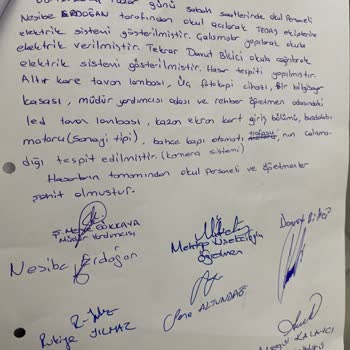 günü sabah saatlerinde okul Personeli
Nesibe ERDOĞAN tarafından okul açılarak TEDAŞ ekiplerine
elektrik sistemi gösterilmiştir. Çalışmalar yapılarak okula
elektrik verilmiştir. Tekrar Davut BİLİCİ okula çağrılarak
elektrik sistemi gösterilmiştir. Hasar tespiti yapılmıştır.
Altı kare tavan lambası, Üç fotokopi cihazı, Bir bilgisayar
kasası, müdür yardımcısı odası ve rehber öğretmen odasındaki
led tavan lambası, kazan ekran kart giriş bölümü, buzdolabı
motoru (sanayi tipi), bahçe kapı otomatı trafosu nun çalışma-
dığı tespit edilmiştir. (kamera sistemi)
Hasarların tamamından okul Personeli ve öğretmenler
şahit olmuştur.
Müdür Yardımcısı
Nesibe Erdoğan
Öğretmen
Davut BİLİCİ
Rukiye YILMAZ
ALTUNDAĞ
KALANCI